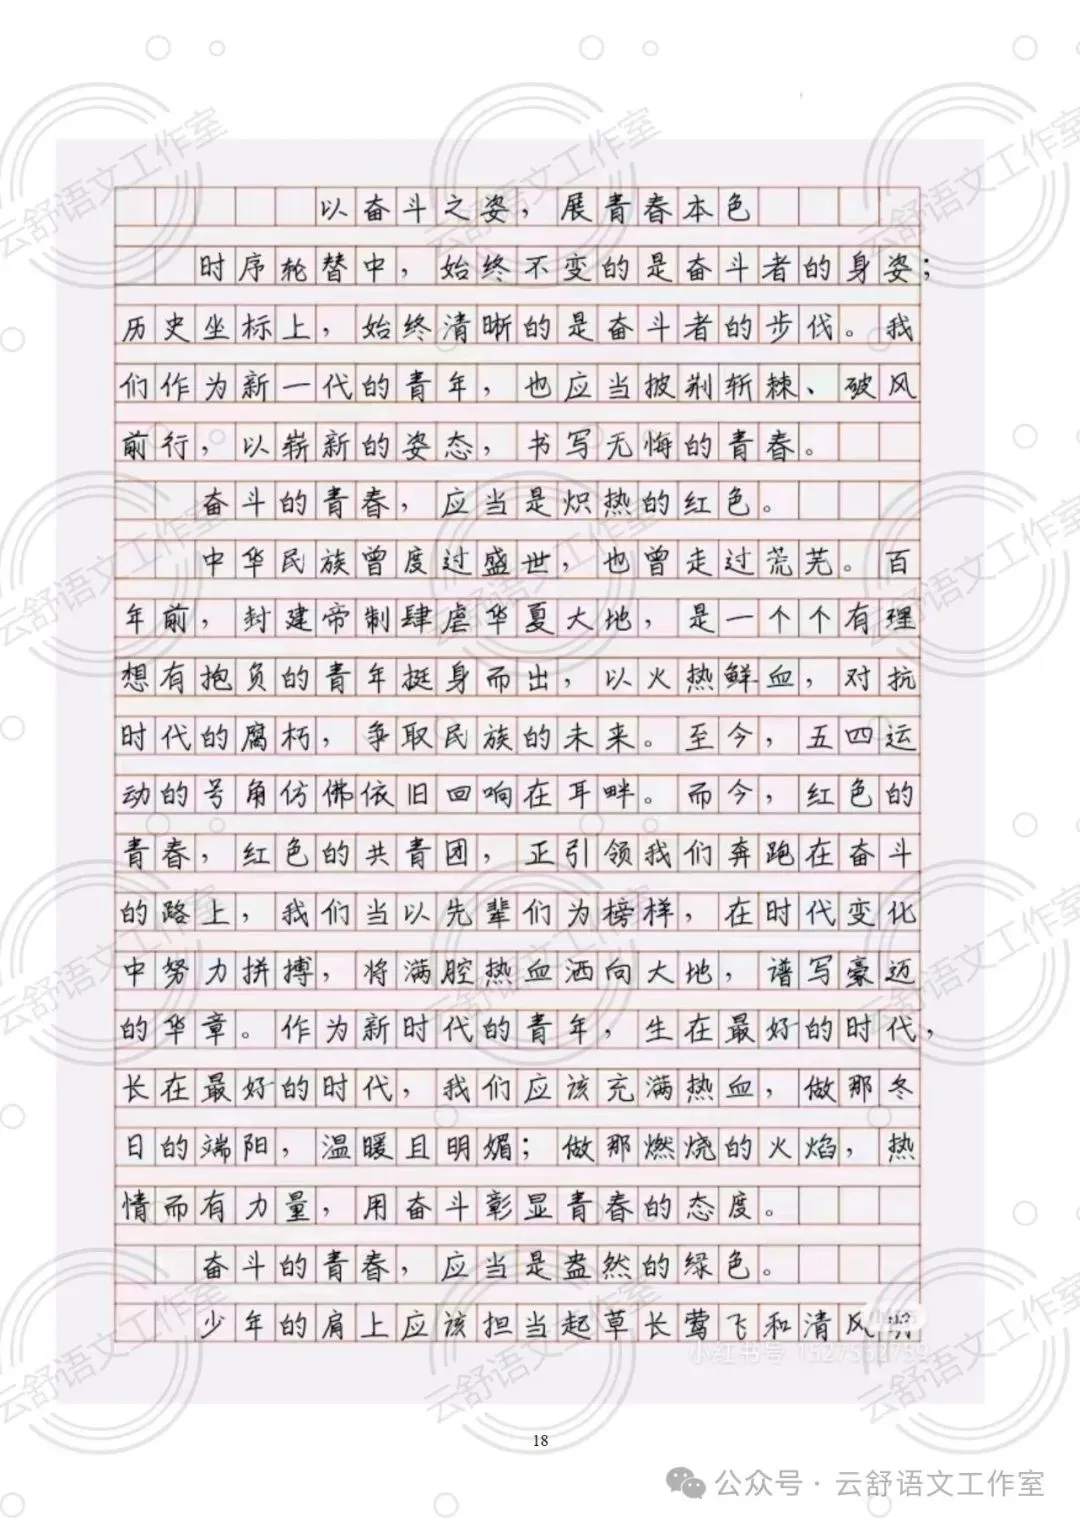 以奋斗之姿，展青春本色
时序轮替中，始终不变的是奋斗者的身姿；
历史坐标上，始终清晰的是奋斗者的步伐。我
们作为新一代的青年，也应当披荆斩棘、破风
前行，以崭新的姿态，书写无悔的青春。
奋斗的青春，应当是炽热的红色。
中华民族曾度过盛世，也曾走过荒芜。百
年前，封建帝制肆虐华夏大地，是一个个有理
想有抱负的青年挺身而出，以火热鲜血，对抗
时代的腐朽，争取民族的未来。至今，五四运
动的号角仿佛依旧回响在耳畔。而今，红色的
青春，红色的共青团，正引领我们奔跑在奋斗
的路上，我们当以先辈们为榜样，在时代变化
中努力拼搏，将满腔热血洒向大地，谱写豪迈
的华章。作为新时代的青年，生在最好的时代，
长在最好的时代，我们应该充满热血，做那冬
日的端阳，温暖且明媚；做那燃烧的火焰，热
情而有力量，用奋斗彰显青春的态度。
奋斗的青春，应当是盎然的绿色。
少年的肩上应该担当起草长莺飞和清风
小红书号 1527552759
18
公众号·云舒语文工作室
云舒语文工作室